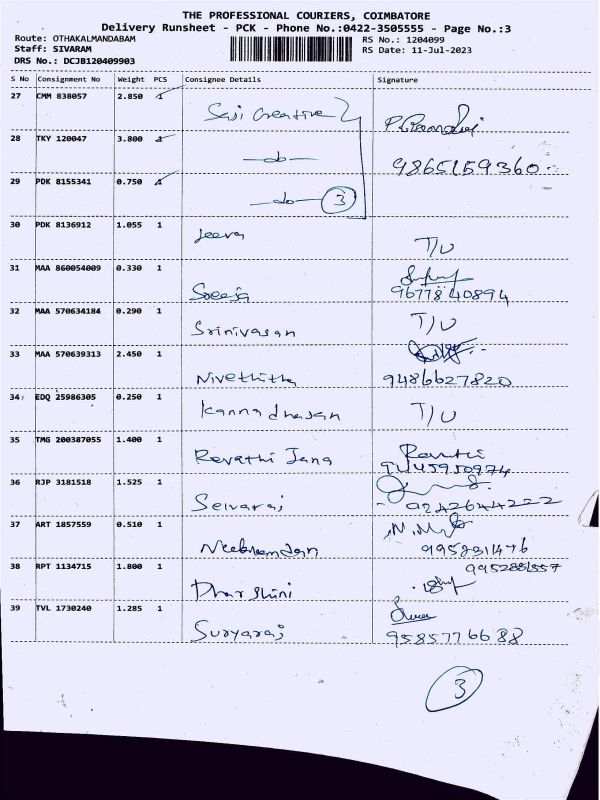 THE PROFESSIONAL COURIERS, COIMBATORE
Delivery Runsheet - PCK - Phone No.:0422-3505555 - Page No.:3
Route: OTHAKALMANDABAM RS No.: 1204099
Staff: SIVARAM RS Date: 11-Jul-2023
DRS No.: DCJB120409903
S No Consignment No Weight PCS Consignee Details Signature
27 CMM 838057 2.850 1 Creative
28 TKY 120047 3.800 1 -do- 9865159360
29 PDK 8155341 0.750 1 -do- 3
30 PDK 8136912 1.055 1 Jeeva T/U
31 MAA 860054009 0.330 1 Sreeja 9677840894
32 MAA 570634184 0.290 1 Srinivasan T/U
33 MAA 570639313 2.450 1 Nivethitha 9486627820
34 EDQ 25986305 0.250 1 Kannadhasan T/U
35 TMG 200387055 1.400 1 Revathi Jana Revathi
36 RJP 3181518 1.525 1 Selvaraj 9242644222
37 ART 1857559 0.510 1
38 RPT 1134715 1.800 1 Dharshini
39 TVL 1730240 1.285 1 Suryaraj 9585776688
3